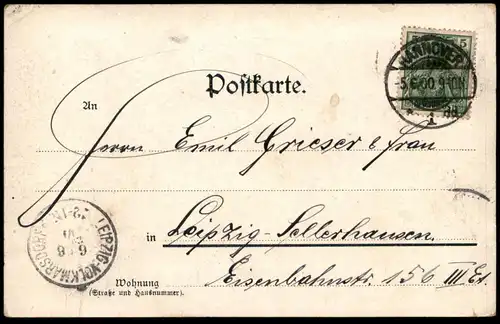 Postkarte.
5
HANNOVER
5.6.00.9-10N
* 1
An
Herrn Emil Grieser & Frau
in Leipzig-Sellerhausen
Eisenbahnstr. 156 III Et.
LEIPZIG-VOLKMARSDORF
6 6
00
Wohnung
(Straße und Hausnummer).